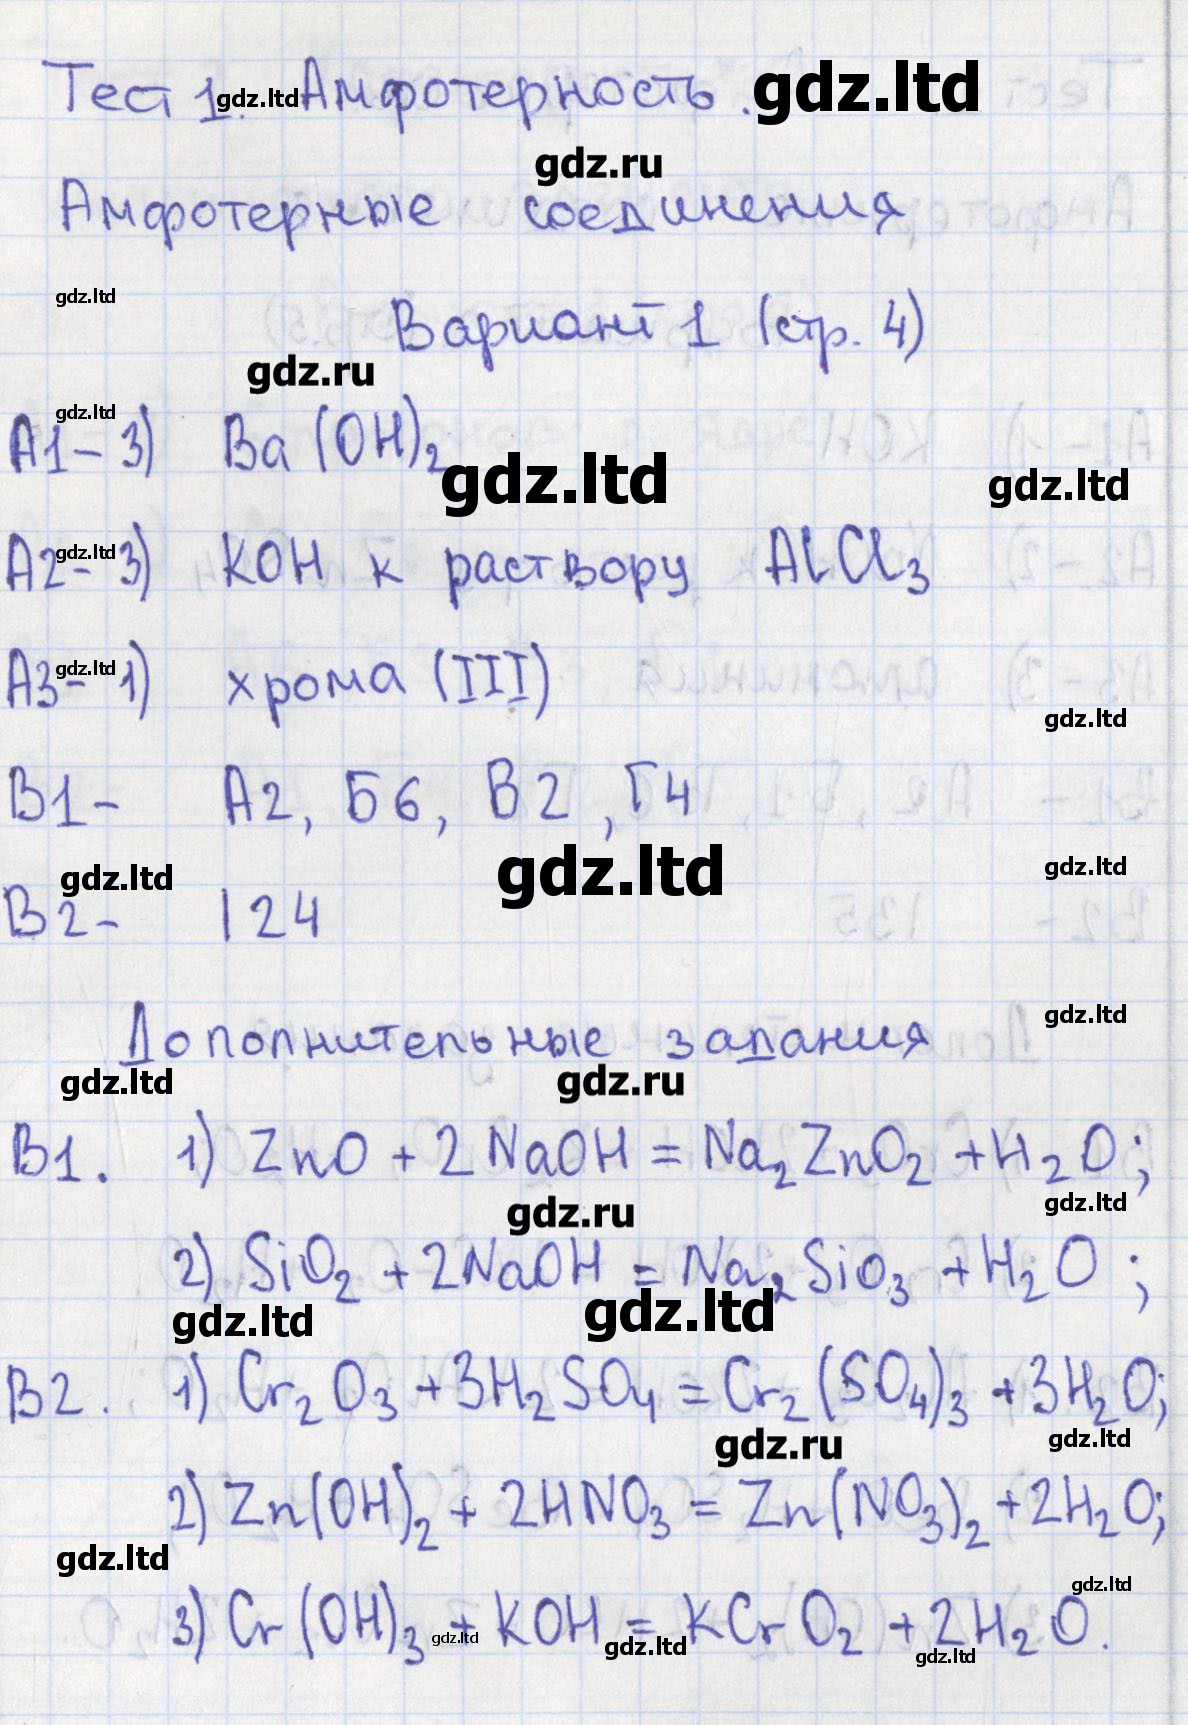 Тест 1. gdz.ltd Амфотерность. gdz.ltd
gdz.ru
Амфотерные соединения
gdz.ltd
Вариант 1 (стр. 4)
gdz.ru
gdz.ltd
А1 - 3) Ba(OH)₂
gdz.ltd gdz.ltd
А2 - 3) KOH к раствору AlCl₃
gdz.ltd
А3 - 1) хрома (III)
gdz.ltd
gdz.ltd
В1 - А2, Б6, В2, Г4
gdz.ltd gdz.ltd gdz.ltd
В2 - 124
gdz.ltd
Дополнительные задания
gdz.ltd gdz.ru
В1. 1) ZnO + 2NaOH = Na₂ZnO₂ + H₂O;
gdz.ru gdz.ltd
2) SiO₂ + 2NaOH = Na₂SiO₃ + H₂O;
gdz.ltd gdz.ltd
В2. 1) Cr₂O₃ + 3H₂SO₄ = Cr₂(SO₄)₃ + 3H₂O;
gdz.ru gdz.ltd
2) Zn(OH)₂ + 2HNO₃ = Zn(NO₃)₂ + 2H₂O;
gdz.ltd
gdz.ltd
3) Cr(OH)₃ + KOH = KCrO₂ + 2H₂O.
gdz.ltd gdz.ltd gdz.ltd